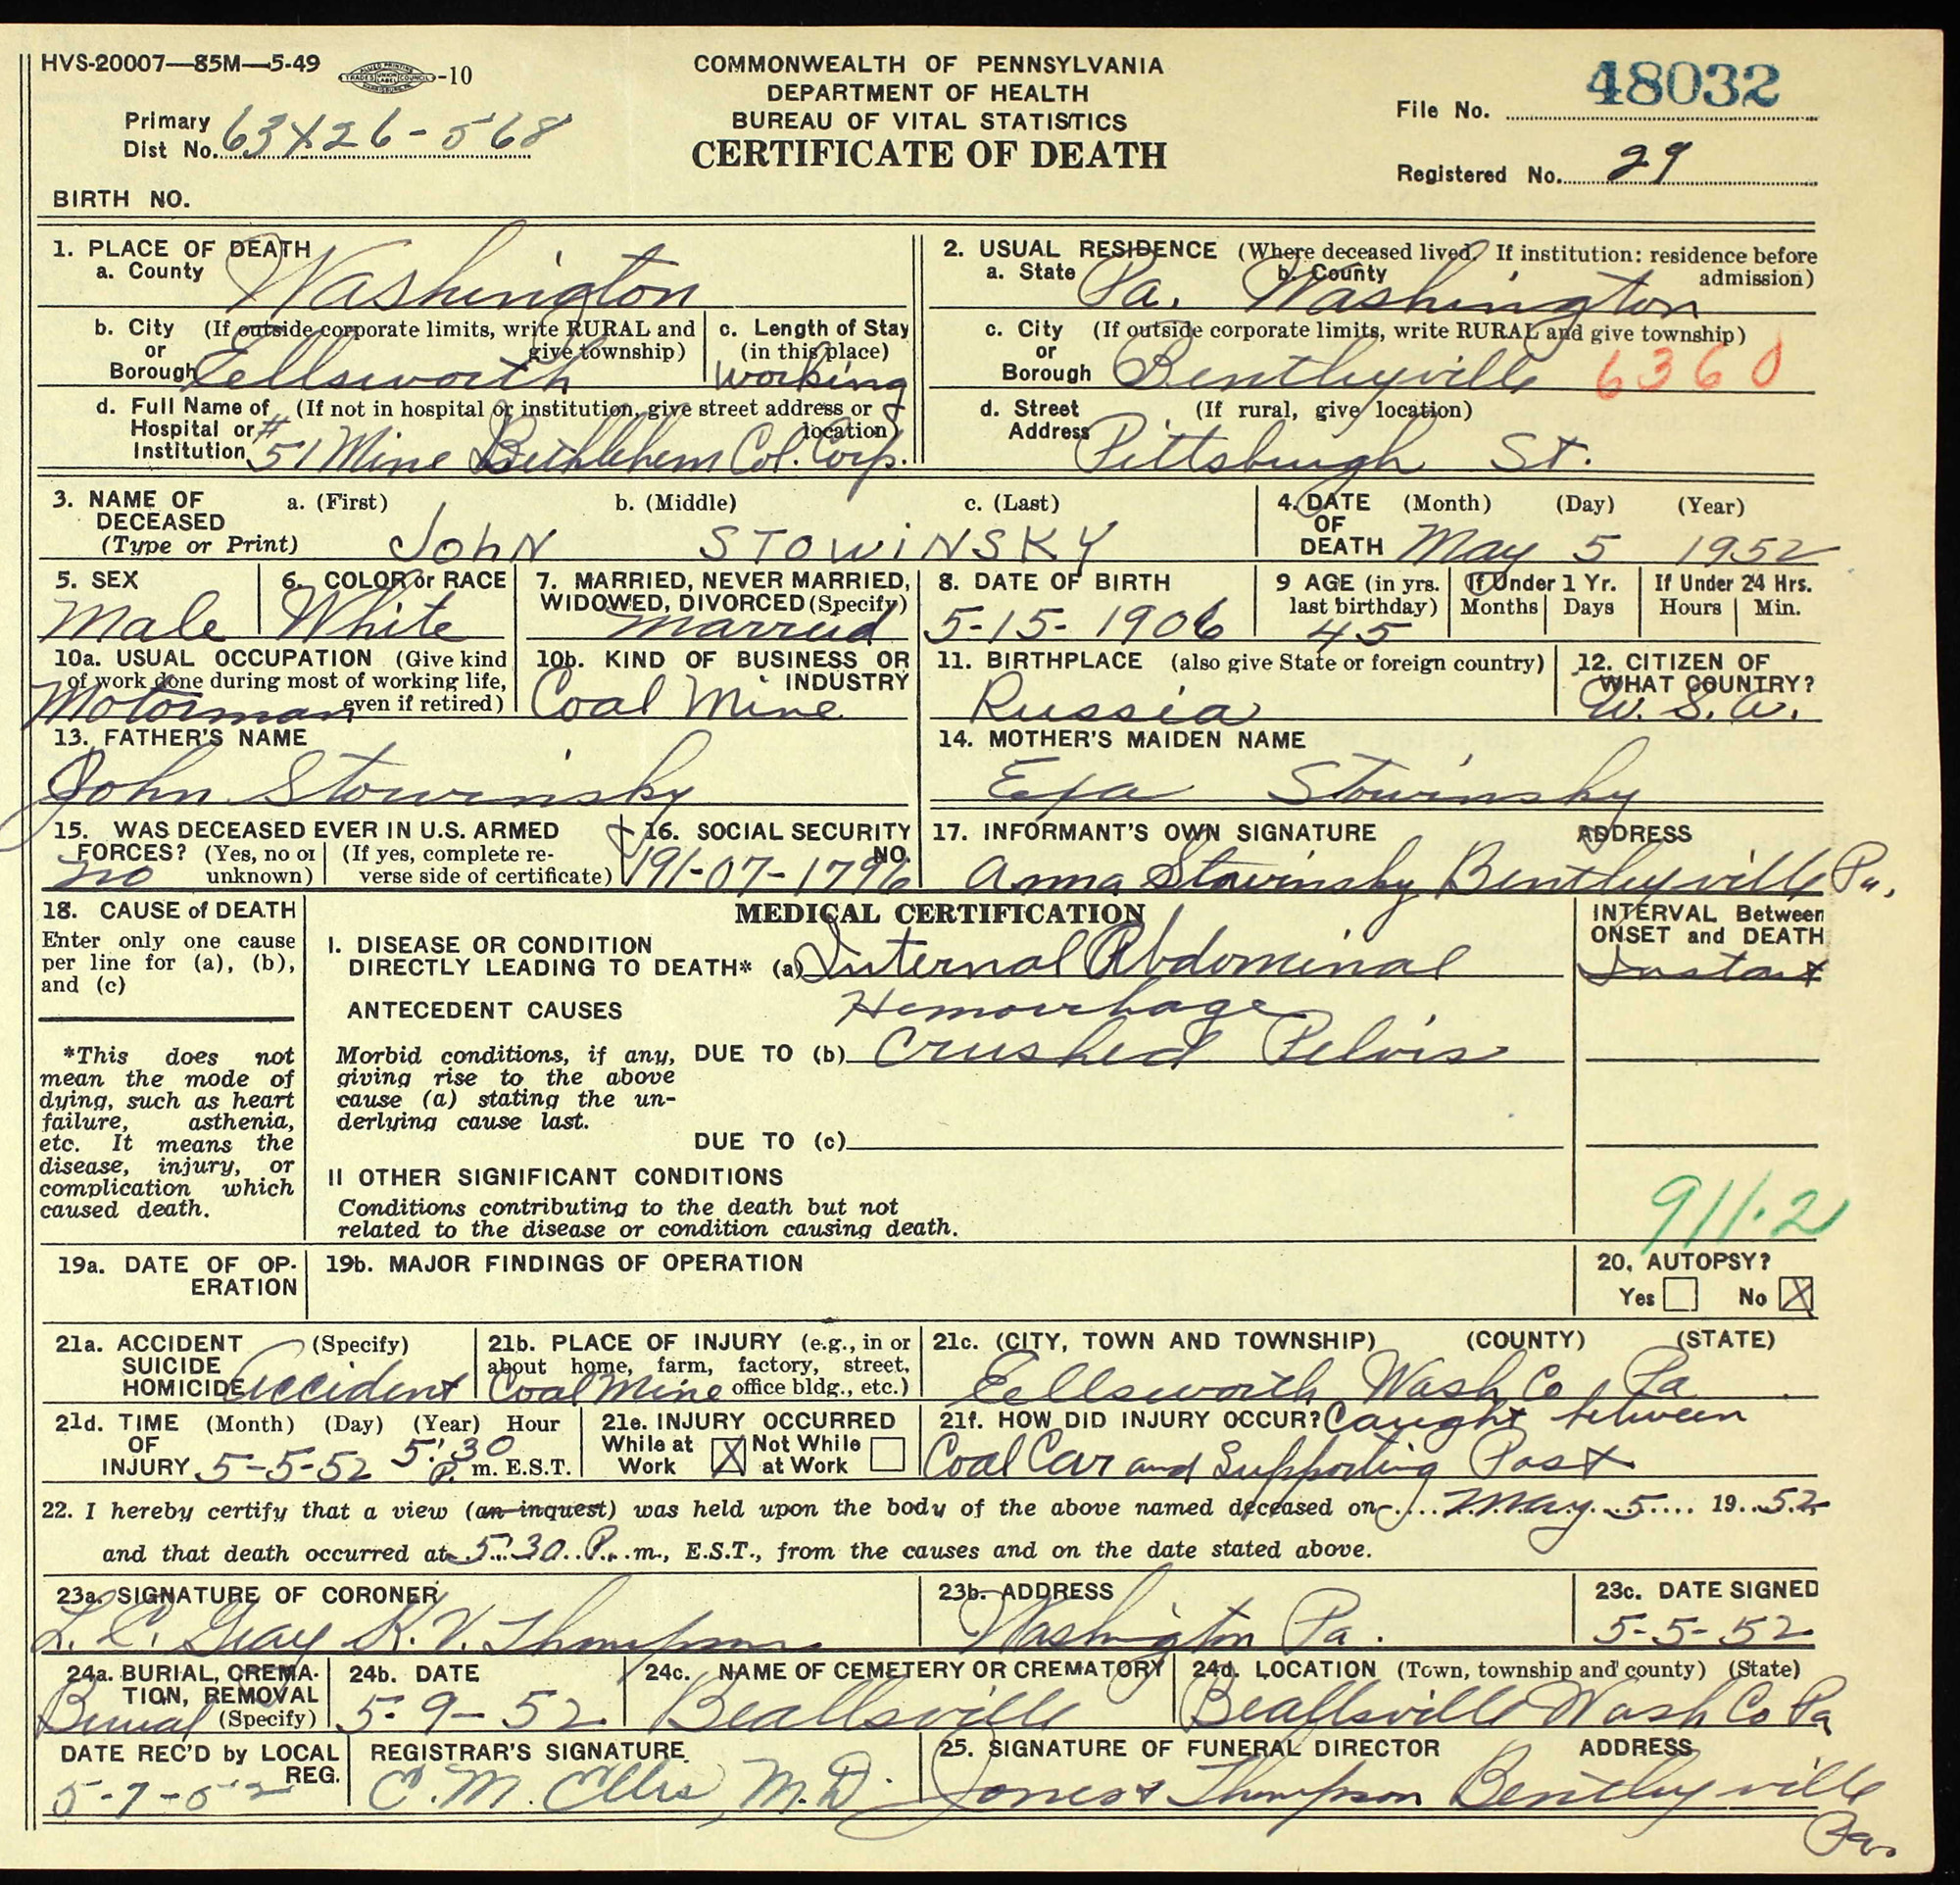 HVS-20007—85M—5-49 -10
COMMONWEALTH OF PENNSYLVANIA
DEPARTMENT OF HEALTH
BUREAU OF VITAL STATISTICS
CERTIFICATE OF DEATH
File No. 48032
Primary
Dist No. 63X26-568
Registered No. 29
BIRTH NO.
1. PLACE OF DEATH
a. County Washington
b. City (If outside corporate limits, write RURAL and
or give township)
Borough Eellsworth
c. Length of Stay
(in this place)
Working
d. Full Name of (If not in hospital or institution, give street address or
Hospital or location)
Institution #51 Mine Bethlehem Col. Corp.
2. USUAL RESIDENCE (Where deceased lived. If institution: residence before
admission)
a. State Pa. b. County Washington
c. City (If outside corporate limits, write RURAL and give township)
or
Borough Bentleyville 6360
d. Street (If rural, give location)
Address Pittsburgh St.
3. NAME OF a. (First) b. (Middle) c. (Last)
DECEASED
(Type or Print) JOHN STOWINSKY
4. DATE (Month) (Day) (Year)
OF
DEATH May 5 1952
5. SEX
Male
6. COLOR or RACE
White
7. MARRIED, NEVER MARRIED,
WIDOWED, DIVORCED (Specify)
Married
8. DATE OF BIRTH
5-15-1906
9 AGE (in yrs.
last birthday)
45
If Under 1 Yr.
Months Days
If Under 24 Hrs.
Hours Min.
10a. USUAL OCCUPATION (Give kind
of work done during most of working life,
even if retired)
Motorman
10b. KIND OF BUSINESS OR
INDUSTRY
Coal Mine
11. BIRTHPLACE (also give State or foreign country)
Russia
12. CITIZEN OF
WHAT COUNTRY?
U.S.A.
13. FATHER'S NAME
John Stowinsky
14. MOTHER'S MAIDEN NAME
Stowinsky
15. WAS DECEASED EVER IN U.S. ARMED
FORCES? (Yes, no or (If yes, complete re-
no unknown) verse side of certificate)
16. SOCIAL SECURITY
NO.
191-07-1796
17. INFORMANT'S OWN SIGNATURE ADDRESS
Anna Stowinsky Bentleyville Pa.
18. CAUSE of DEATH
Enter only one cause
per line for (a), (b),
and (c)
*This does not
mean the mode of
dying, such as heart
failure, asthenia,
etc. It means the
disease, injury, or
complication which
caused death.
MEDICAL CERTIFICATION
I. DISEASE OR CONDITION
DIRECTLY LEADING TO DEATH* (a) Internal Abdominal
Hemorrhage
ANTECEDENT CAUSES
Morbid conditions, if any,
giving rise to the above
cause (a) stating the un-
derlying cause last.
DUE TO (b) Crushed Pelvis
DUE TO (c)
II OTHER SIGNIFICANT CONDITIONS
Conditions contributing to the death but not
related to the disease or condition causing death.
INTERVAL Between
ONSET and DEATH
Instant
911.2
19a. DATE OF OP-
ERATION
19b. MAJOR FINDINGS OF OPERATION
20. AUTOPSY?
Yes No X
21a. ACCIDENT (Specify)
SUICIDE
HOMICIDE Accident
21b. PLACE OF INJURY (e.g., in or
about home, farm, factory, street,
office bldg., etc.)
Coal Mine
21c. (CITY, TOWN AND TOWNSHIP) (COUNTY) (STATE)
Eellsworth Wash Co Pa
21d. TIME (Month) (Day) (Year) Hour
OF
INJURY 5-5-52 5:30 P. m. E.S.T.
21e. INJURY OCCURRED
While at X Not While
Work at Work
21f. HOW DID INJURY OCCUR? Caught between
Coal Car and Supporting Post
22. I hereby certify that a view (an inquest) was held upon the body of the above named deceased on May 5 1952
and that death occurred at 5:30 P. m., E.S.T., from the causes and on the date stated above.
23a. SIGNATURE OF CORONER
L. C. Gray K. V. Thompson
23b. ADDRESS
Washington Pa.
23c. DATE SIGNED
5-5-52
24a. BURIAL, CREMA-
TION, REMOVAL
(Specify)
Burial
24b. DATE
5-9-52
24c. NAME OF CEMETERY OR CREMATORY
Beallsville
24d. LOCATION (Town, township and county) (State)
Beallsville Wash Co Pa
DATE REC'D by LOCAL
REG.
5-7-52
REGISTRAR'S SIGNATURE
C. M. Ellis, M.D.
25. SIGNATURE OF FUNERAL DIRECTOR ADDRESS
Jones & Thompson Bentleyville
Pa.